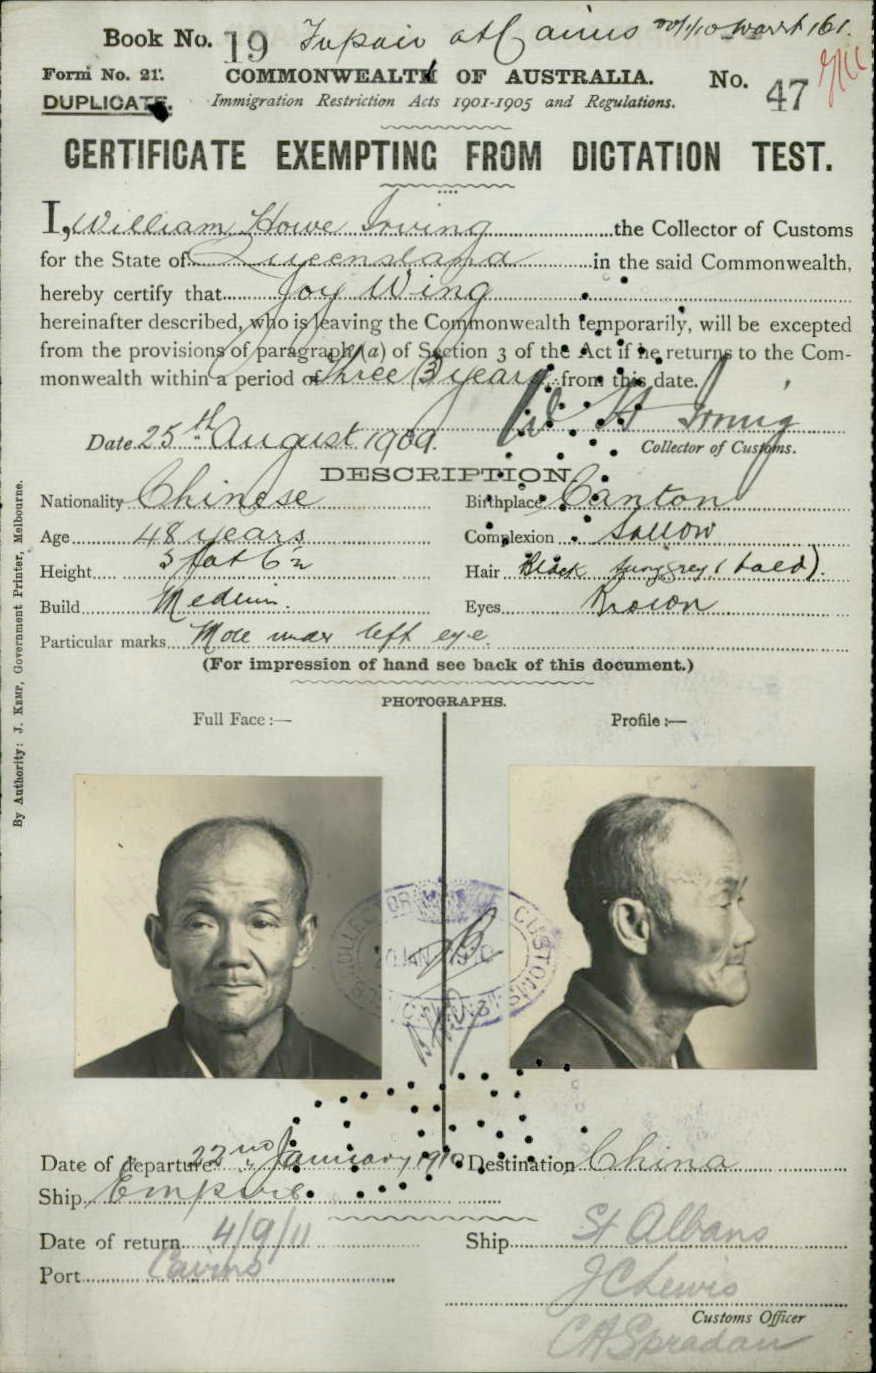 Book No. 19 at Cairns
Form No. 21. COMMONWEALTH OF AUSTRALIA. No. 47
DUPLICATE. Immigration Restriction Acts 1901-1905 and Regulations.
CERTIFICATE EXEMPTING FROM DICTATION TEST.
I, William Howe Irving the Collector of Customs
for the State of Queensland in the said Commonwealth,
hereby certify that Joy Wing
hereinafter described, who is leaving the Commonwealth temporarily, will be excepted
from the provisions of paragraph (a) of Section 3 of the Act if he returns to the Com-
monwealth within a period of three (3) years from this date.
W. H. Irving
Date 25th August 1909. Collector of Customs.
DESCRIPTION.
Nationality Chinese Birthplace Canton
Age 48 years Complexion Sallow
Height 5 feet 6 in Hair Black turng grey, (bald).
Build Medium. Eyes Brown
Particular marks Mole under left eye.
(For impression of hand see back of this document.)
PHOTOGRAPHS.
Full Face:— Profile:—
COLLECTOR OF CUSTOMS
20 JAN 1910
Date of departure 22nd January 1910 Destination China
Ship Empire
Date of return 4/9/11 Ship St Albans
Port Cairns J C Lewis
Customs Officer
By Authority: J. Kemp, Government Printer, Melbourne.